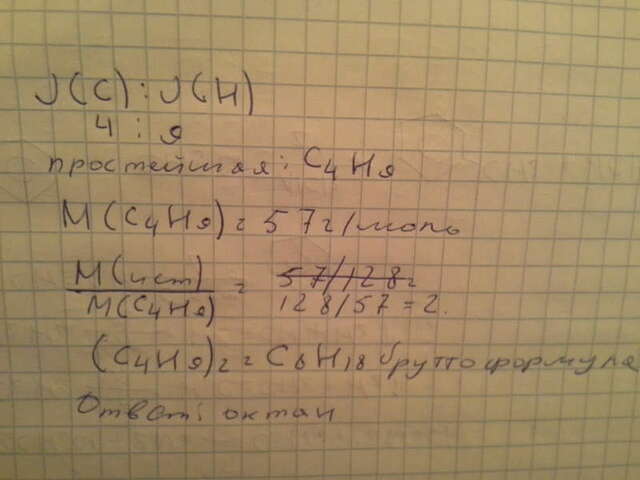 ν(C) : ν(H)
4 : 9
простейшая: C₄H₉
M(C₄H₉) = 57 г/моль
M(ист) / M(C₄H₉) = 57/128 = 128/57 = 2.
(C₄H₉)₂ = C₈H₁₈ брутто формула
Ответ: октан